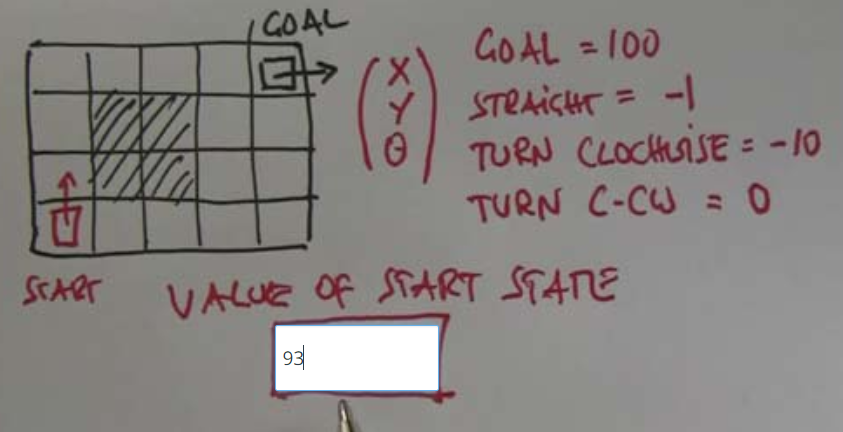 GOAL
X
Y
θ
GOAL = 100
STRAIGHT = -1
TURN CLOCKWISE = -10
TURN C-CW = 0
START
VALUE OF START STATE
93